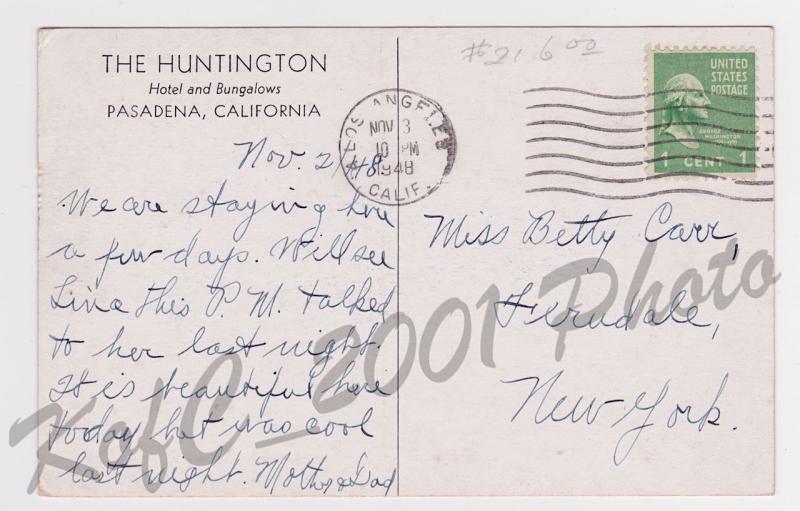 THE HUNTINGTON
Hotel and Bungalows
PASADENA, CALIFORNIA
Nov. 2/48
We are staying here
a few days. Will see
Lina this P.M. talked
to her last night.
It is beautiful here
today but was cool
last night. Mother & Dad
#21 6 00
LOS ANGELES
NOV 3
10 PM
1948
CALIF.
UNITED
STATES
POSTAGE
GEORGE
WASHINGTON
1 CENT 1
Miss Betty Carr,
Ferndale,
New York.
KafC_2001 Photo